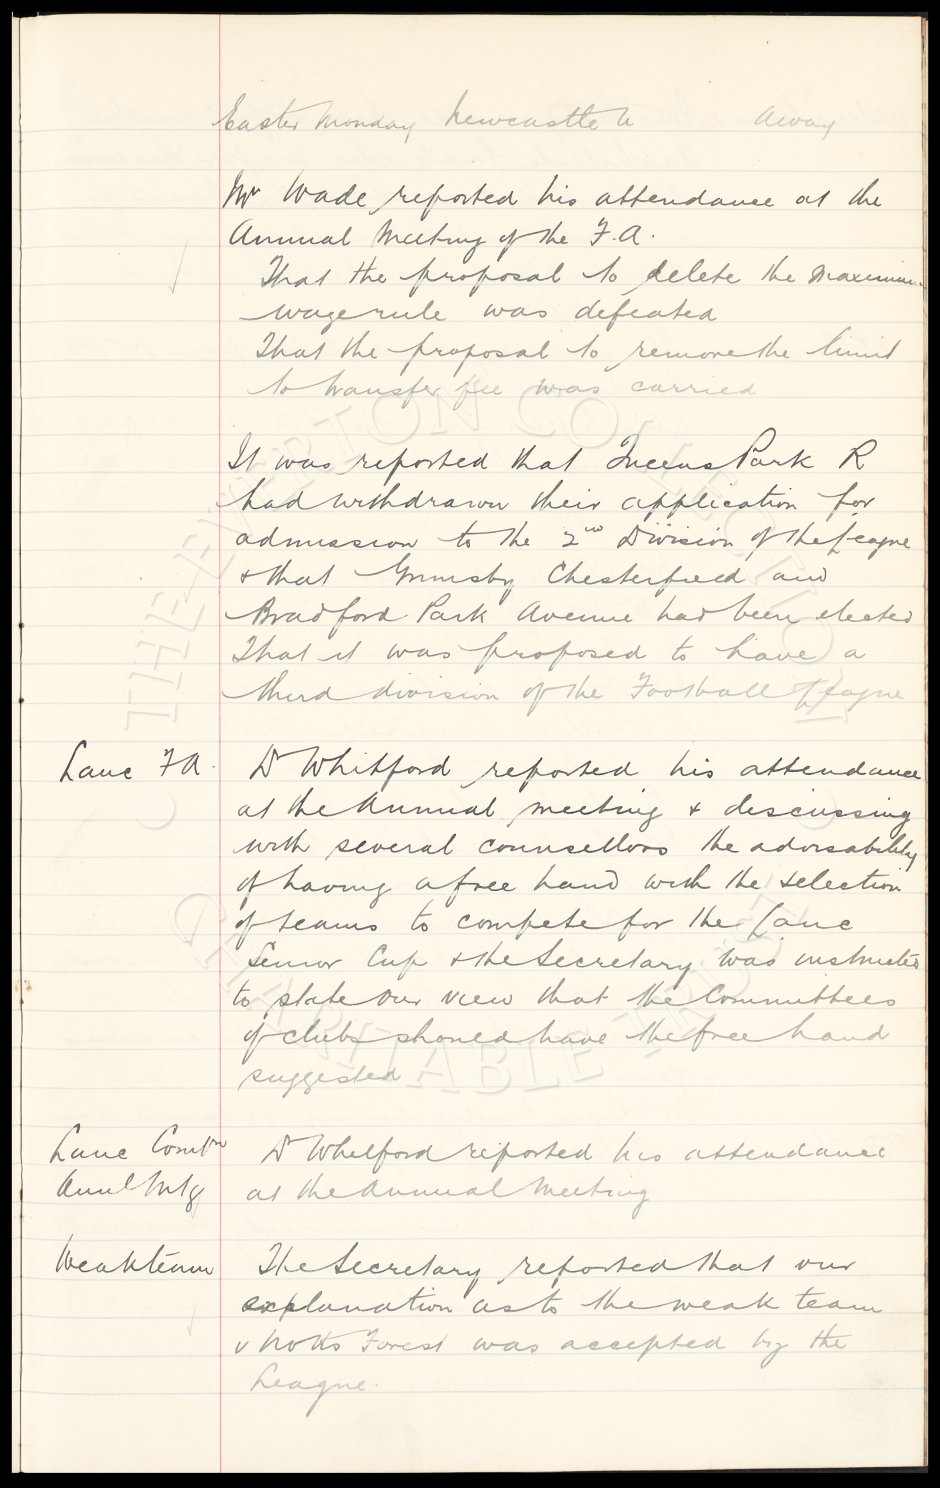 Easter Monday Newcastle U Away
Mr Wade reported his attendance at the
Annual Meeting of the F.A.
That the proposal to delete the Maximum
wage rule was defeated
That the proposal to remove the limit
to transfer fee was carried
It was reported that Queens Park R
had withdrawn their application for
admission to the 2nd Division of the League
& that Grimsby Chesterfield and
Bradford Park Avenue had been elected
That it was proposed to have a
third division of the Football League
Lanc F A. Dr Whitford reported his attendance
at the Annual meeting & discussing
with several counsellors the advisability
of having a free hand with the selection
of teams to compete for the Lanc
Senior Cup & the Secretary was instructed
to state our view that the Committees
of clubs should have the free hand
suggested
Lanc Combn Dr Whitford reported his attendance
Annl Mtg at the Annual Meeting
Weak team The Secretary reported that our
explanation as to the weak team
v Notts Forest was accepted by the
League.
THE EVERTON COLLECTION
CHARITABLE TRUST